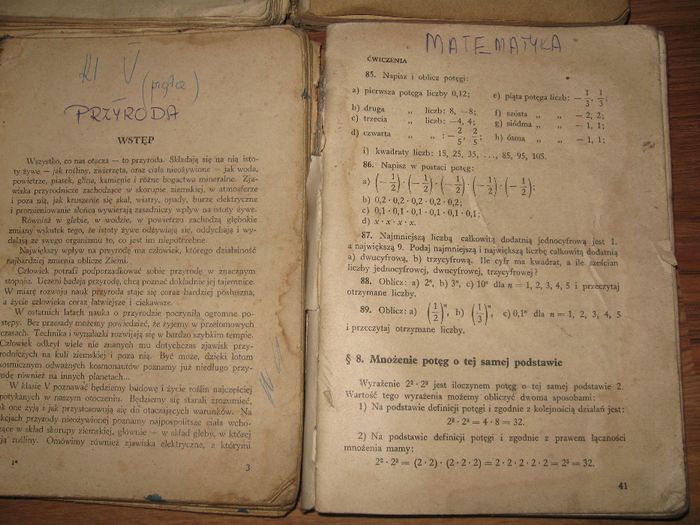 kl V
PRZYRODA
WSTĘP
Wszystko, co nas otacza — to przyroda. Składają się na nią isto-
ty żywe — jak rośliny, zwierzęta, oraz ciała nieożywione — jak woda,
powietrze, piasek, glina, kamienie i różne bogactwa mineralne. Zja-
wiska przyrodnicze zachodzące w skorupie ziemskiej, w atmosferze
i poza nią, jak kruszenie się skał, wiatry, opady, burze elektryczne
i promieniowanie słońca wywierają zasadniczy wpływ na istoty żywe.
Również w glebie, w wodzie, w powietrzu zachodzą głębokie
zmiany wskutek tego, że istoty żywe odżywiają się, oddychają i wy-
dalają ze swego organizmu to, co jest im niepotrzebne.
Największy wpływ na przyrodę ma człowiek, którego działalność
najbardziej zmienia oblicze Ziemi.
Człowiek potrafi podporządkować sobie przyrodę w znacznym
stopniu. Uczeni badają przyrodę, chcą poznać dokładnie jej tajemnice.
W miarę rozwoju nauk przyroda staje się coraz bardziej posłuszna,
a życie człowieka coraz łatwiejsze i ciekawsze.
W ostatnich latach nauka o przyrodzie poczyniła ogromne po-
stępy. Bez przesady możemy powiedzieć, że żyjemy w przełomowych
czasach. Technika i wynalazki rozwijają się w bardzo szybkim tempie.
Człowiek odkrył wiele nie znanych mu dotychczas zjawisk przy-
rodniczych na kuli ziemskiej i poza nią. Być może, dzięki lotom
kosmicznym odważnych kosmonautów poznamy już niedługo przy-
rodę również na innych planetach...
W klasie V poznawać będziemy budowę i życie roślin najczęściej
spotykanych w naszym otoczeniu. Będziemy się starali zrozumieć,
jak one żyją i jak przystosowują się do otaczających warunków. Na
lekcjach przyrody nieożywionej poznamy najpospolitsze ciała wcho-
dzące w skład skorupy ziemskiej, głównie — w skład gleby, w której
żyją rośliny. Omówimy również zjawiska elektryczne, z którymi
1*
3
MATEMATYKA
ĆWICZENIA
85. Napisz i oblicz potęgi:
a) pierwsza potęga liczby 0,12; e) piąta potęga liczb: −1/3, 1/3;
b) druga „ liczb: 8, −8; f) szósta „ „ − 2, 2;
c) trzecia „ liczb: −4, 4; g) siódma „ „ − 1, 1;
d) czwarta „ „ : −2/5, 2/5; h) ósma „ „ − 1, 1;
i) kwadraty liczb: 15, 25, 35, ..., 85, 95, 105.
86. Napisz w postaci potęg:
a) (−1/2)·(−1/2)·(−1/2)·(−1/2)·(−1/2);
b) 0,2 · 0,2 · 0,2 · 0,2 · 0,2;
c) 0,1 · 0,1 · 0,1 · 0,1 · 0,1 · 0,1;
d) x · x · x · x.
87. Najmniejszą liczbą całkowitą dodatnią jednocyfrową jest 1,
a największą 9. Podaj najmniejszą i największą liczbę całkowitą dodatnią
a) dwucyfrową, b) trzycyfrową. Ile cyfr ma kwadrat, a ile sześcian
liczby jednocyfrowej, dwucyfrowej, trzycyfrowej?
88. Oblicz: a) 2ⁿ, b) 3ⁿ, c) 10ⁿ dla n = 1, 2, 3, 4, 5 i przeczytaj
otrzymane liczby.
89. Oblicz: a) (1/2)ⁿ, b) (1/3)ⁿ, c) 0,1ⁿ dla n = 1, 2, 3, 4, 5
i przeczytaj otrzymane liczby.
§ 8. Mnożenie potęg o tej samej podstawie
Wyrażenie 2² · 2³ jest iloczynem potęg o tej samej podstawie 2.
Wartość tego wyrażenia możemy obliczyć dwoma sposobami:
1) Na podstawie definicji potęgi i zgodnie z kolejnością działań jest:
2² · 2³ = 4 · 8 = 32.
2) Na podstawie definicji potęgi i zgodnie z prawem łączności
mnożenia mamy:
2² · 2³ = (2 · 2) · (2 · 2 · 2) = 2 · 2 · 2 · 2 · 2 = 2⁵ = 32.
41